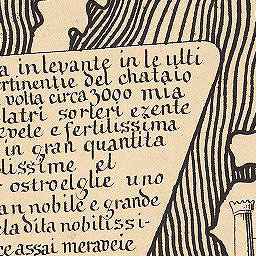 a in levante in le ulti
ertinentie del chataio
volta circa 3000 mia
latri sorleri ezente
evele e fertilissima
in gran quantita
lissime et
ostroelglie uno
an nobile e grande
ela dita nobilissi-
ce assai meraveie